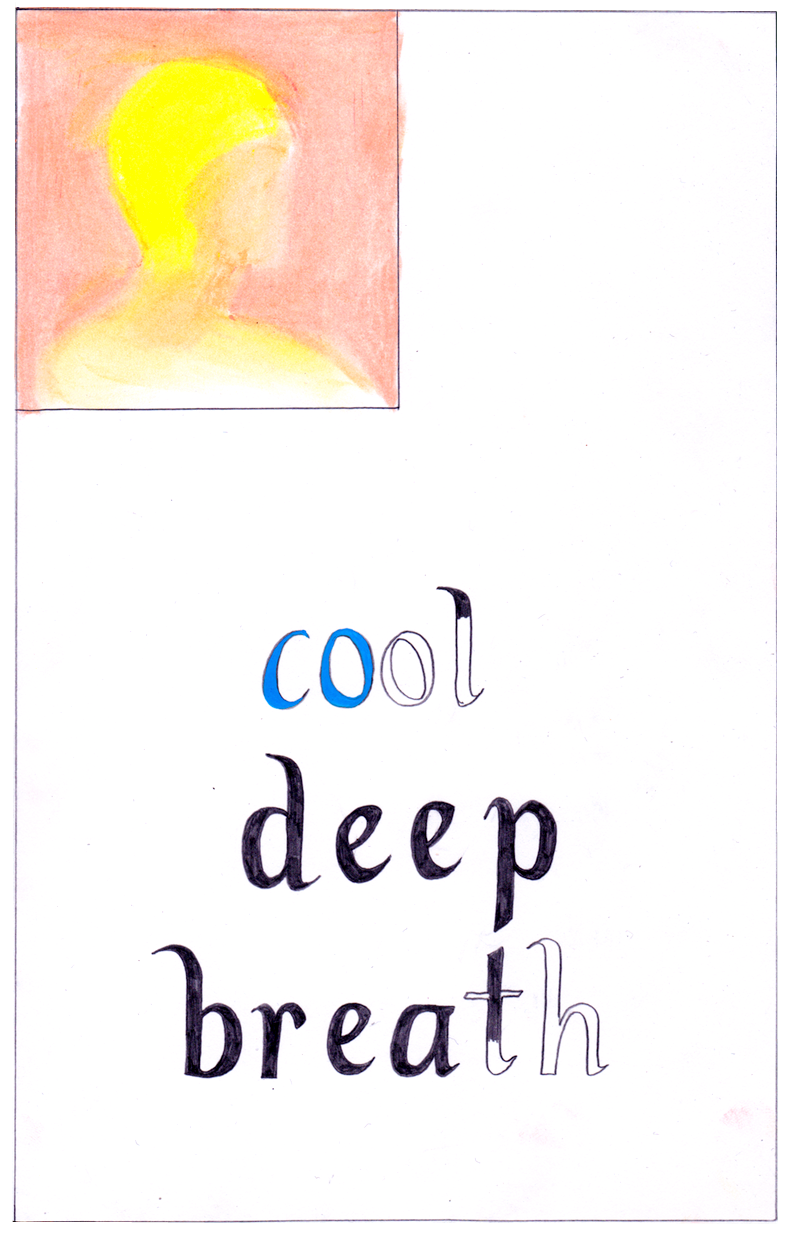 cool
deep
breath